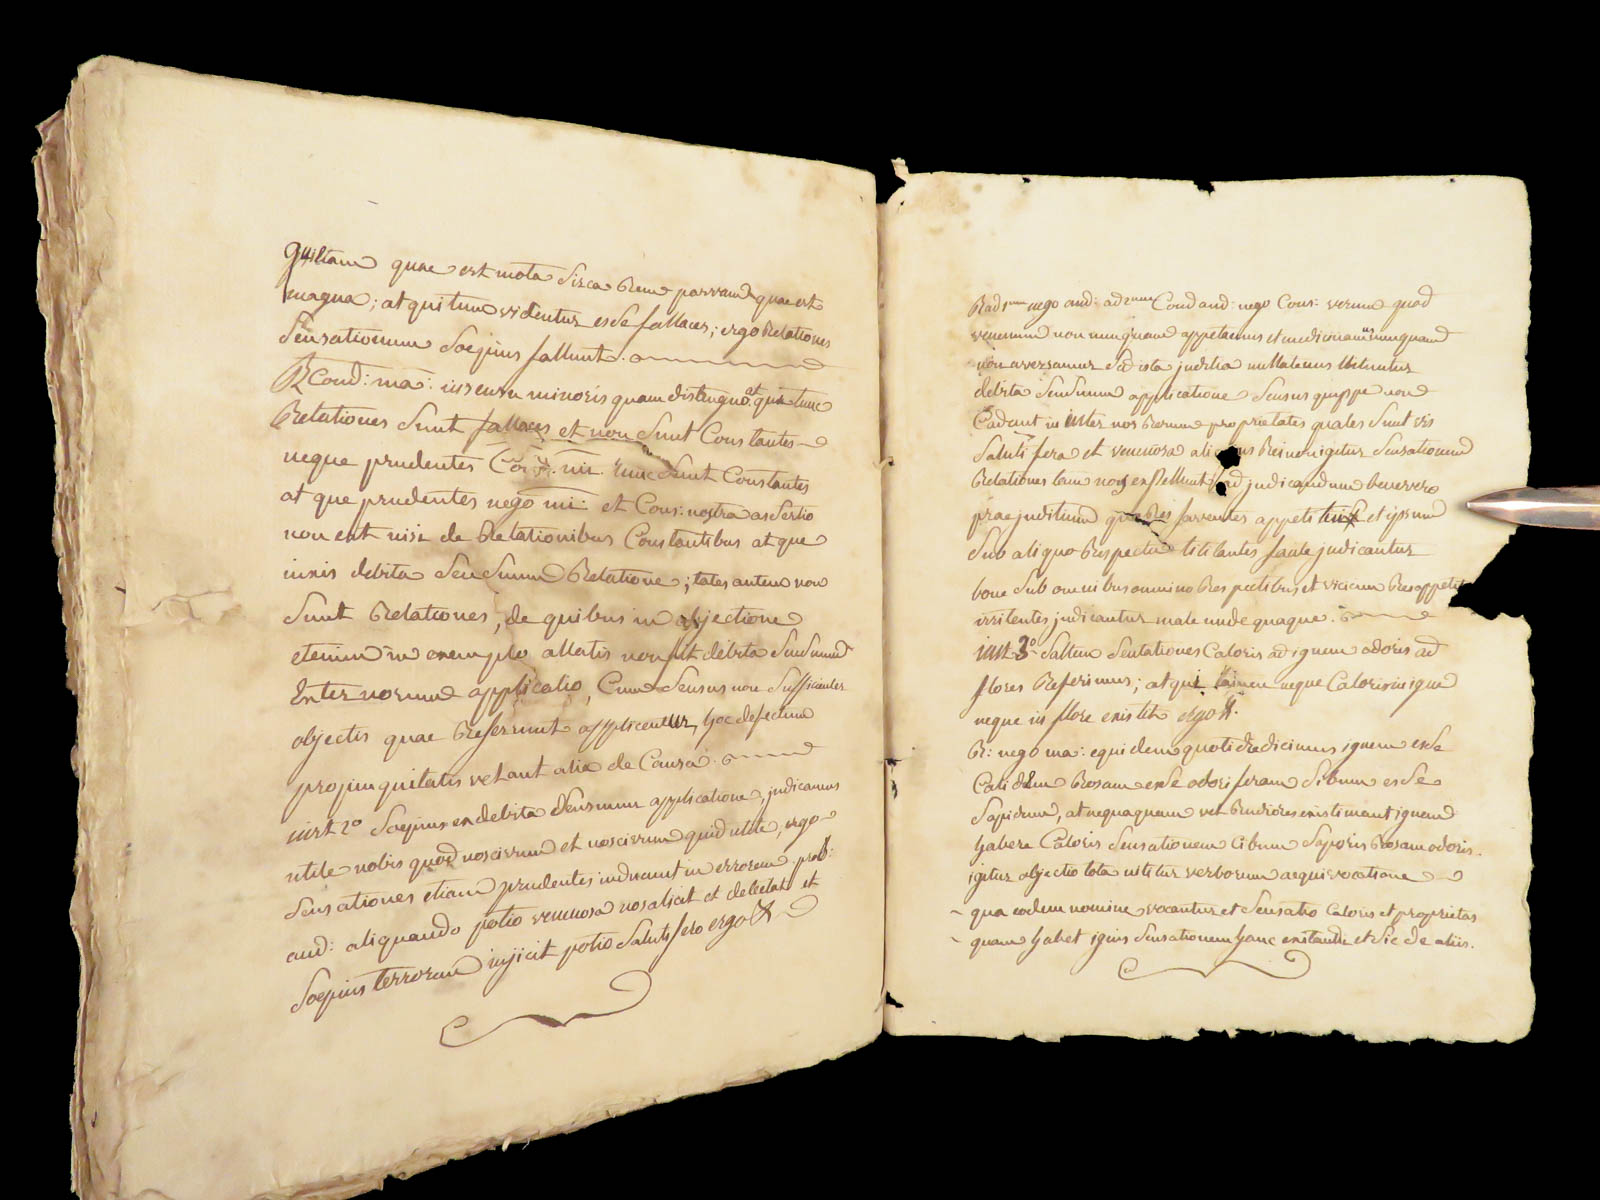 quae est mota circa rem parvam quae est
magna; atqui tum videntur esse fallaces; ergo Relationes
Sensationum Soepius fallunt.
R Cond: ma: in sensu minoris quam distinguo: at quia tunc
Relationes Sunt fallaces et non Sunt Constantes
neque prudentes nunc Sunt Constantes
at que prudentes nego mi: et Cons: nostra assertio
non est nisi de Relationibus Constantibus atque
debita Sensuum Relatione; tales autem non
Sunt Relationes, de quibus in objectione
etenim in exemplo allatis non fit debita Sensuum
Enternorum applicatio, Cum Sensus non Sufficienter
objectis quae Referunt applicentur, hoc defectum
propinquitatis vel ant alia de Causa.
inst 2º Soepius ex debita Sensuum applicatione, judicamus
utile nobis quod nocivum et nocivum quid utile, ergo
Sensationes etiam prudentes inducunt in errorem. prob:
and: aliquando potio venenosa nos alicit et delectat et
Soepius terrorem injicit potio Salutifero ergo &
R ad 1um nego and: ad 2um Cond and: nego Cons: verum quod
venenum non nunquam appetamus et medicinam nunquam
non aversamur Sed ista juditia nullatenus Nituntur
debita Sensuum applicatione Sensus quippe non
Cadunt in inter nos Rerum proprietates quales Sunt vis
Salutifera et venenosa Sensationum
Relationes tum non ad judicandum bene vero
praejuditium appeti et ipsum
Sub aliquo Respectu titilantes Saule judicantur
bone Sub omnibus omnino Respectibus et vicium Res appetit
irritentes judicantur male unde quaque.
inst 3º Saltem Sentationes Caloris ad ignem odoris ad
flores Referimus; atqui tamen neque Calor in igne
neque in flore existit ergo &.
R: nego ma: equidem quotidie dicimus ignem esse
Calidum Rosam esse odoriferam Cibum esse
Sapidum, at nequaquam vel Rudiores existimant ignem
habere Caloris Sensationem Cibum Saporis Rosam odoris.
igitur objectio tota nititur verborum aequivocatione
qua eodem nomine vocantur et Sensatio Caloris et proprietas
quam habet ignis Sensationem hanc excitandi et Sic de aliis.